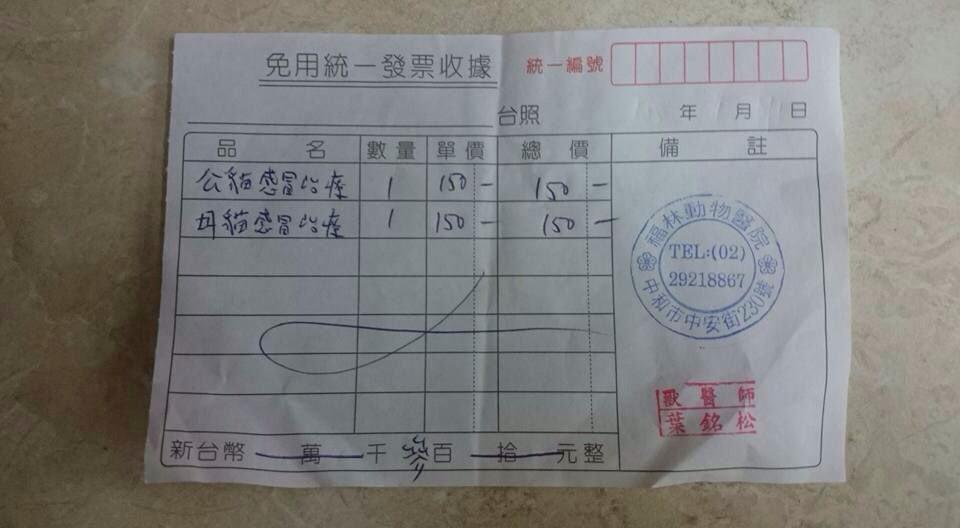 免用統一發票收據 統一編號
台照 年 月 日
品名 數量 單價 總價 備註
公貓感冒治療 1 150- 150-
母貓感冒治療 1 150- 150-
福林動物醫院
TEL:(02)
29218867
中和市中安街230號
獸醫師
葉銘松
新台幣 萬 千 參 百 拾 元整